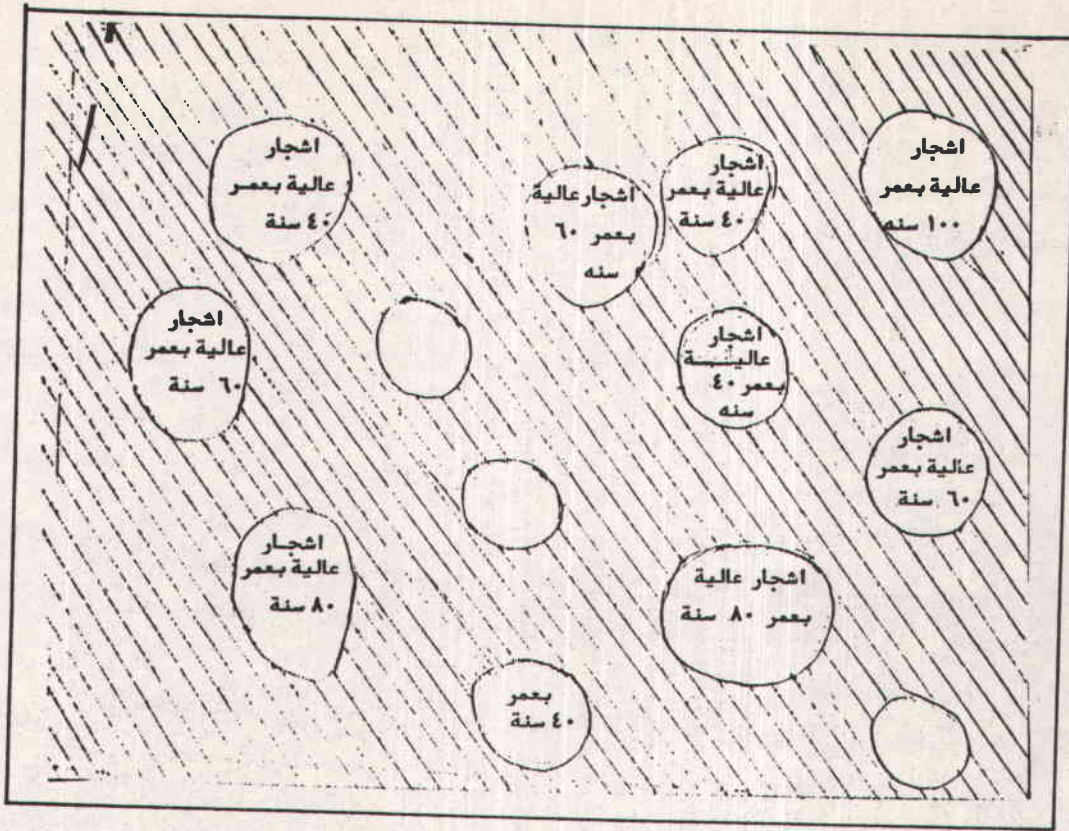 اشجار
عالية بعمر
١٠٠ سنه
اشجار
عالية بعمر
٤٠ سنة
اشجار عالية
بعمر ٦٠
سنه
اشجار
عالية بعمر
٤٠ سنة
اشجار
عاليـــة
بعمر ٤٠
سنه
اشجار
عالية بعمر
٦٠ سنة
اشجار
عالية بعمر
٦٠ سنة
اشجار عالية
بعمر ٨٠ سنة
اشجار
عالية بعمر
٨٠ سنة
بعمر
٤٠ سنة